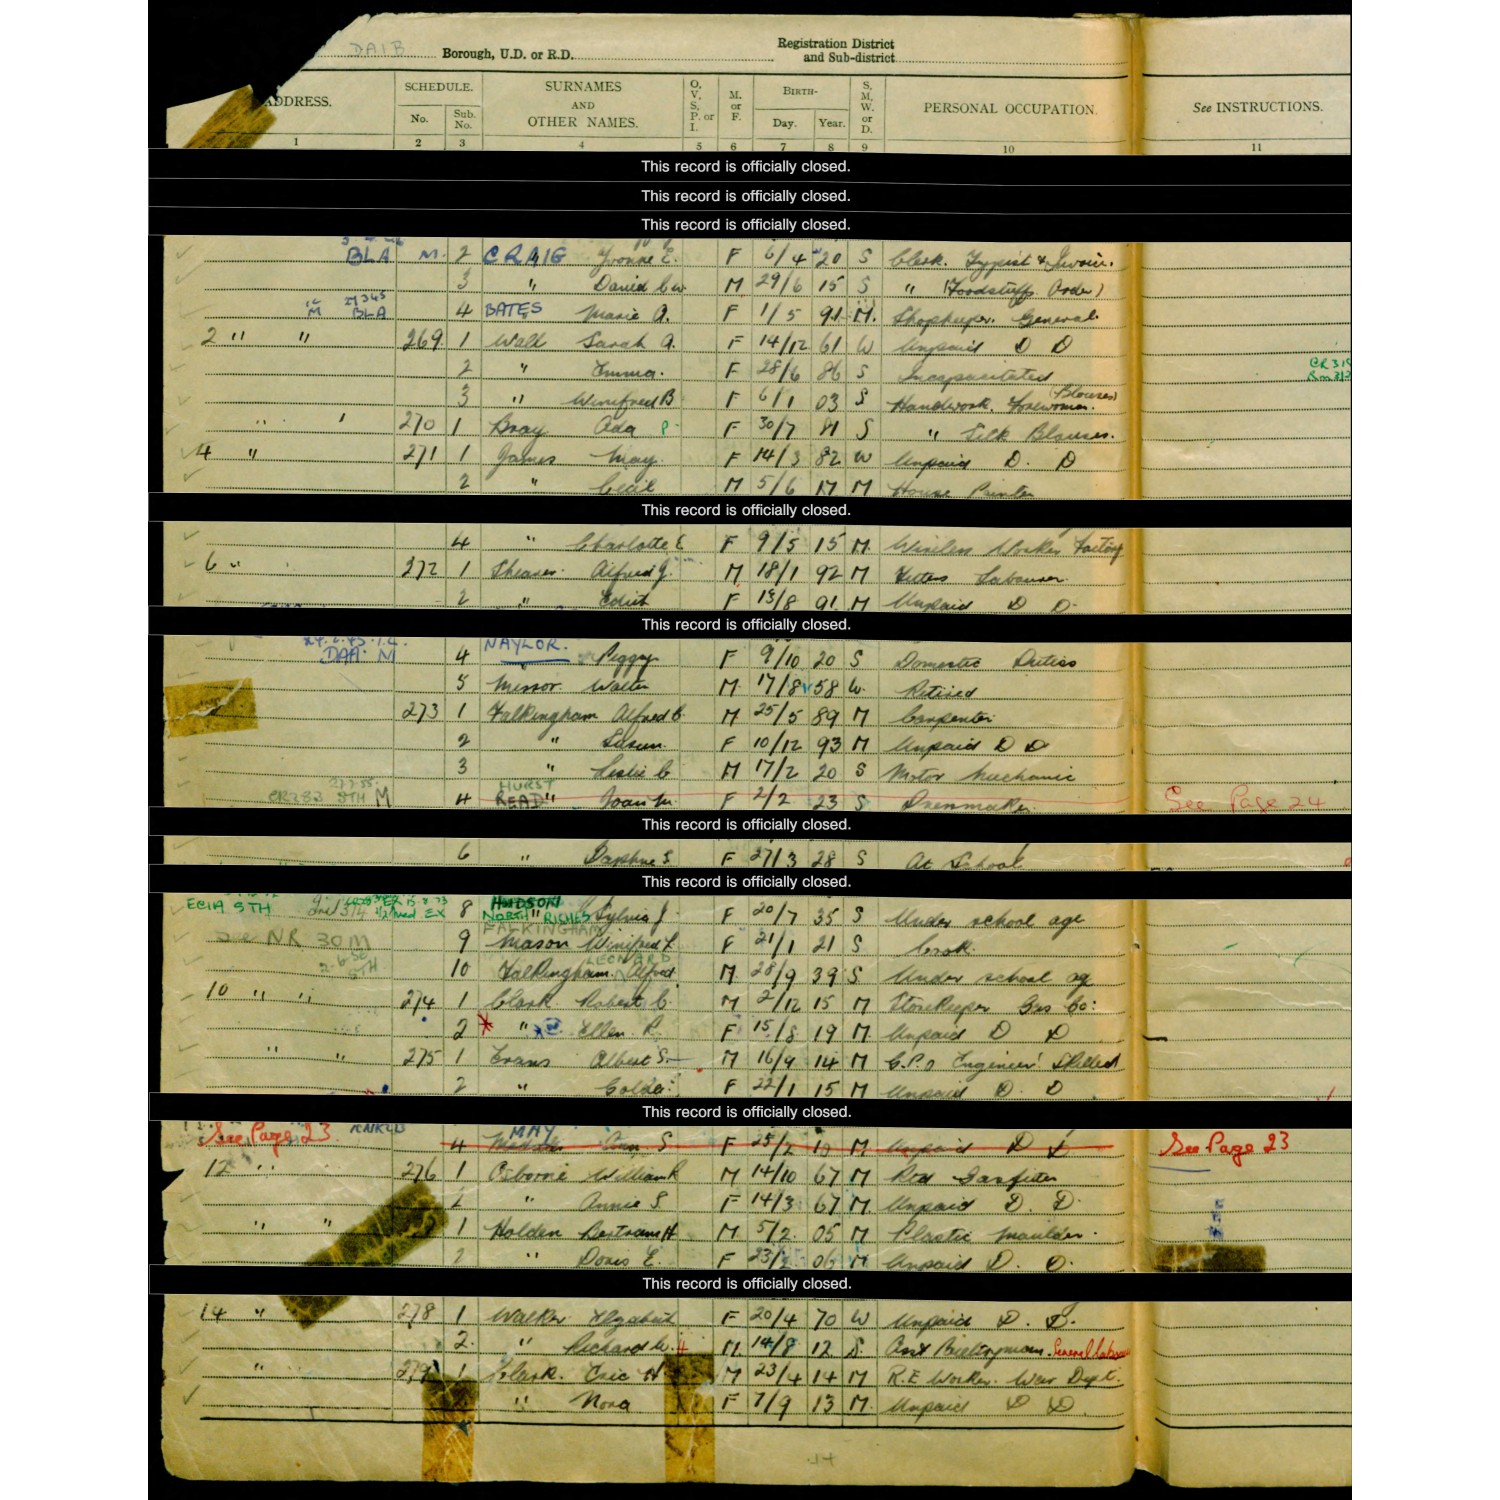 DAIB Borough, U.D. or R.D. Registration District and Sub-district
ADDRESS. SCHEDULE. No. Sub. No. SURNAMES AND OTHER NAMES. O, V, S, P. or I. M. or F. BIRTH- Day. Year. S, M, W. or D. PERSONAL OCCUPATION. See INSTRUCTIONS.
1 2 3 4 5 6 7 8 9 10 11
This record is officially closed.
This record is officially closed.
This record is officially closed.
BLA M. 2 CRAIG Yvonne E. F 6/4 20 S Clerk. Typist & Invoice.
3 " David C W M 29/6 15 S " (Foodstuffs Order)
M BLA 4 BATES Marie A. F 1/5 91 M. Shopkeeper. General.
2 " " 269 1 Wall Sarah A. F 14/12 61 W Unpaid D D
2 " Emma. F 28/6 86 S Incapacitated
3 " Winifred B F 6/1 03 S Handwork. Forewoman. (Blouses)
" ' 270 1 Bray Ada P- F 30/7 81 S " Silk Blouses.
4 " 271 1 James May. F 14/3 82 W Unpaid D. D
2 " Cecil M 5/6 17 M House Painter
This record is officially closed.
4 " Charlotte E F 9/5 15 M. Wireless Worker Factory
6 " 272 1 Shearer Alfred J. M 18/1 92 M Fitters Labourer.
2 " Edith F 13/8 91 M Unpaid D D.
This record is officially closed.
DAA. M 4 NAYLOR. " Peggy F 9/10 20 S Domestic Duties
5 Mirror Walter M 17/8 58 W. Retired
273 1 Falkingham Alfred C. M 25/5 89 M Carpenter
2 " Susan. F 10/12 93 M Unpaid D D
3 " Leslie C M 17/2 20 S Motor Mechanic
STH M 4 HURST READ " Joan M. F 2/2 23 S Dressmaker. See Page 24
This record is officially closed.
6 " Daphne S. F 27/3 28 S At School
This record is officially closed.
ECIA STH 8 HUDSON NORTH " RICHES Sylvia J. F 20/7 35 S Under school age
See NR 30 M 9 FALKINGHAM Mason Winifred L. F 21/1 21 S Cook.
STH 10 Falkingham. LEONARD Alfred M. 28/9 39 S Under school age
10 " " 274 1 Clark Robert C. M 2/12 15 M Storekeeper Gas Co:
2 " Ellen R. F 15/8 19 M Unpaid D D
" " 275 1 Evans Albert S. M 16/9 14 M G.P.O Engineer Skilled
2 " Golda F 22/1 15 M Unpaid D. D
This record is officially closed.
See Page 23 4 MAY Ann S F 25/2 M Unpaid D D See Page 23
12 " 276 1 Osborne William R M 14/10 67 M Retd Gasfitter
" Annie S. F 14/3 67 M. Unpaid D. D.
" " 1 Holden Bertram H M. 5/2 05 M Plastic Moulder.
2 " Doris E. F 23/2 06 M Unpaid D. D.
This record is officially closed.
14 " 278 1 Walker Elizabeth F 20/4 70 W Unpaid D. D.
2. " Richard W. M 14/8 12 S. General Labourer
" 279 1 Clark. Eric H M 23/4 14 M R.E Worker. War Dept.
" Nora F 7/9 13 M. Unpaid D D.